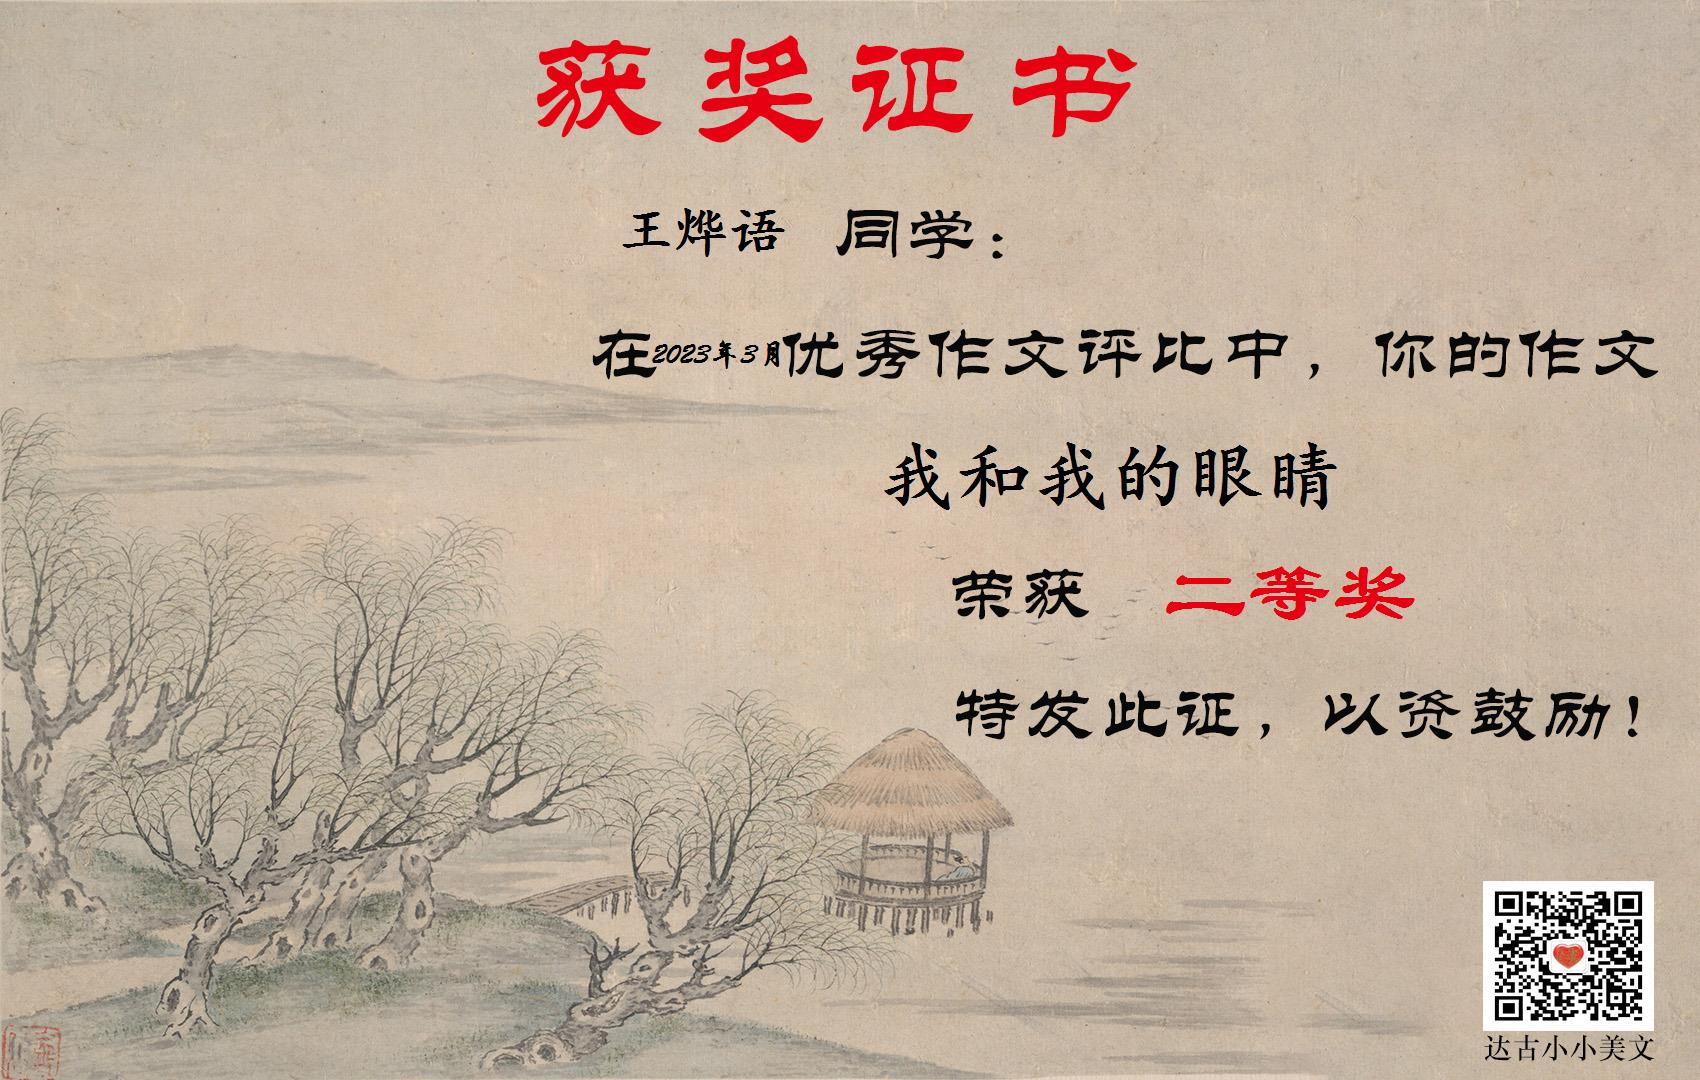 获奖证书
王烨语 同学：
在2023年3月优秀作文评比中，你的作文
我和我的眼睛
荣获 二等奖
特发此证，以资鼓励！
达古小小美文